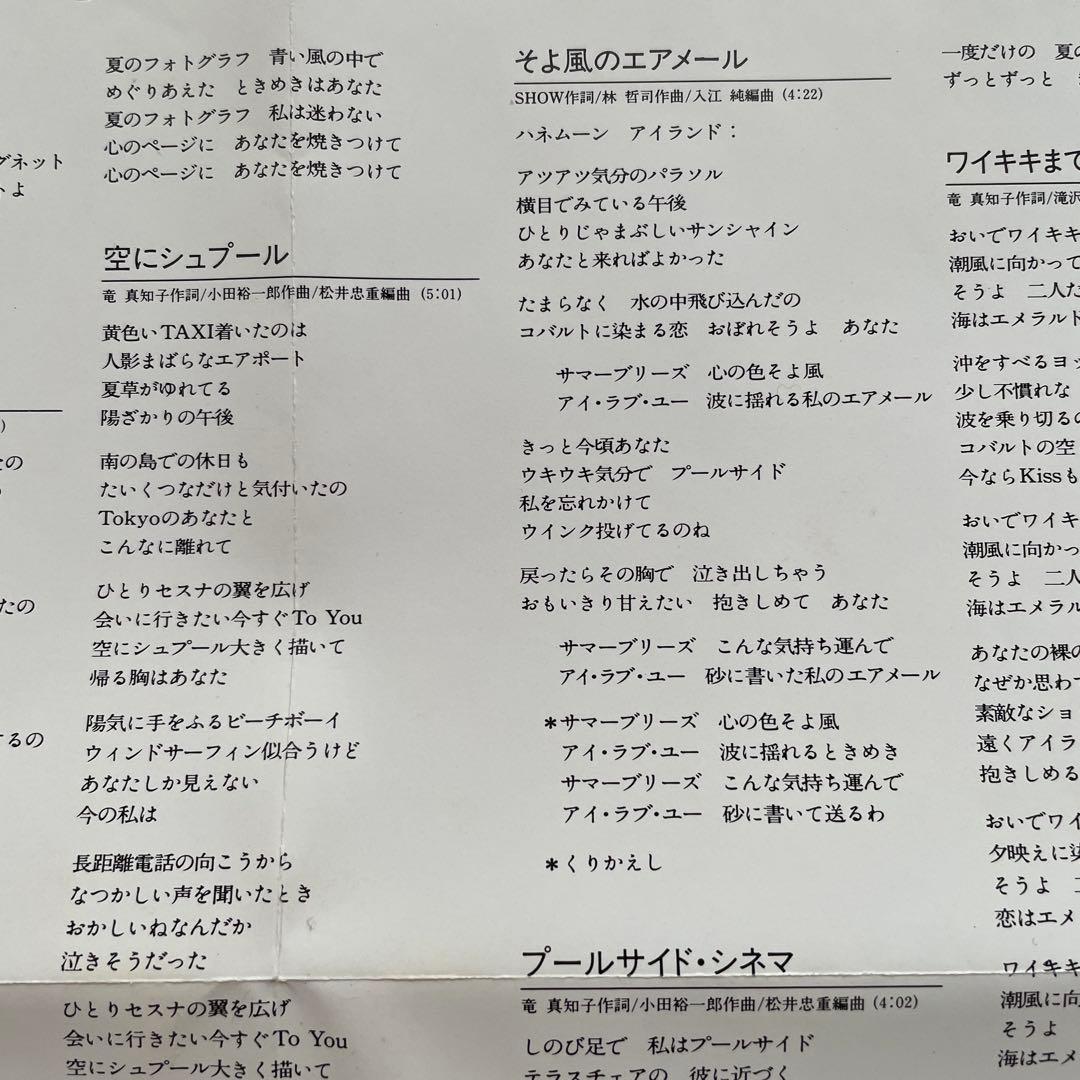 グネット
トよ
)
たの
するの
夏のフォトグラフ　青い風の中で
めぐりあえた　ときめきはあなた
夏のフォトグラフ　私は迷わない
心のページに　あなたを焼きつけて
心のページに　あなたを焼きつけて
空にシュプール
竜 真知子作詞/小田裕一郎作曲/松井忠重編曲 (5:01)
黄色いTAXI着いたのは
人影まばらなエアポート
夏草がゆれてる
陽ざかりの午後
南の島での休日も
たいくつなだけと気付いたの
Tokyoのあなたと
こんなに離れて
ひとりセスナの翼を広げ
会いに行きたい今すぐTo You
空にシュプール大きく描いて
帰る胸はあなた
陽気に手をふるビーチボーイ
ウィンドサーフィン似合うけど
あなたしか見えない
今の私は
長距離電話の向こうから
なつかしい声を聞いたとき
おかしいねなんだか
泣きそうだった
ひとりセスナの翼を広げ
会いに行きたい今すぐTo You
空にシュプール大きく描いて
そよ風のエアメール
SHOW作詞/林 哲司作曲/入江 純編曲 (4:22)
ハネムーン　アイランド：
アツアツ気分のパラソル
横目でみている午後
ひとりじゃまぶしいサンシャイン
あなたと来ればよかった
たまらなく　水の中飛び込んだの
コバルトに染まる恋　おぼれそうよ　あなた
サマーブリーズ　心の色そよ風
アイ・ラブ・ユー　波に揺れる私のエアメール
きっと今頃あなた
ウキウキ気分で　プールサイド
私を忘れかけて
ウインク投げてるのね
戻ったらその胸で　泣き出しちゃう
おもいきり甘えたい　抱きしめて　あなた
サマーブリーズ　こんな気持ち運んで
アイ・ラブ・ユー　砂に書いた私のエアメール
＊サマーブリーズ　心の色そよ風
アイ・ラブ・ユー　波に揺れるときめき
サマーブリーズ　こんな気持ち運んで
アイ・ラブ・ユー　砂に書いて送るわ
＊くりかえし
プールサイド・シネマ
竜 真知子作詞/小田裕一郎作曲/松井忠重編曲 (4:02)
しのび足で　私はプールサイド
テラスチェアの　彼に近づく
一度だけの　夏の
ずっとずっと
ワイキキまで
竜 真知子作詞/滝沢
おいでワイキキ
潮風に向かって
そうよ　二人だ
海はエメラルド
沖をすべるヨッ
少し不慣れな
波を乗り切るの
コバルトの空
今ならKissも
おいでワイキ
潮風に向かっ
そうよ　二人
海はエメラル
あなたの裸の
なぜか思わず
素敵なショ
遠くアイラ
抱きしめる
おいでワイ
夕映えに染
そうよ
恋はエメ
ワイキキ
潮風に向
そうよ
海はエメ